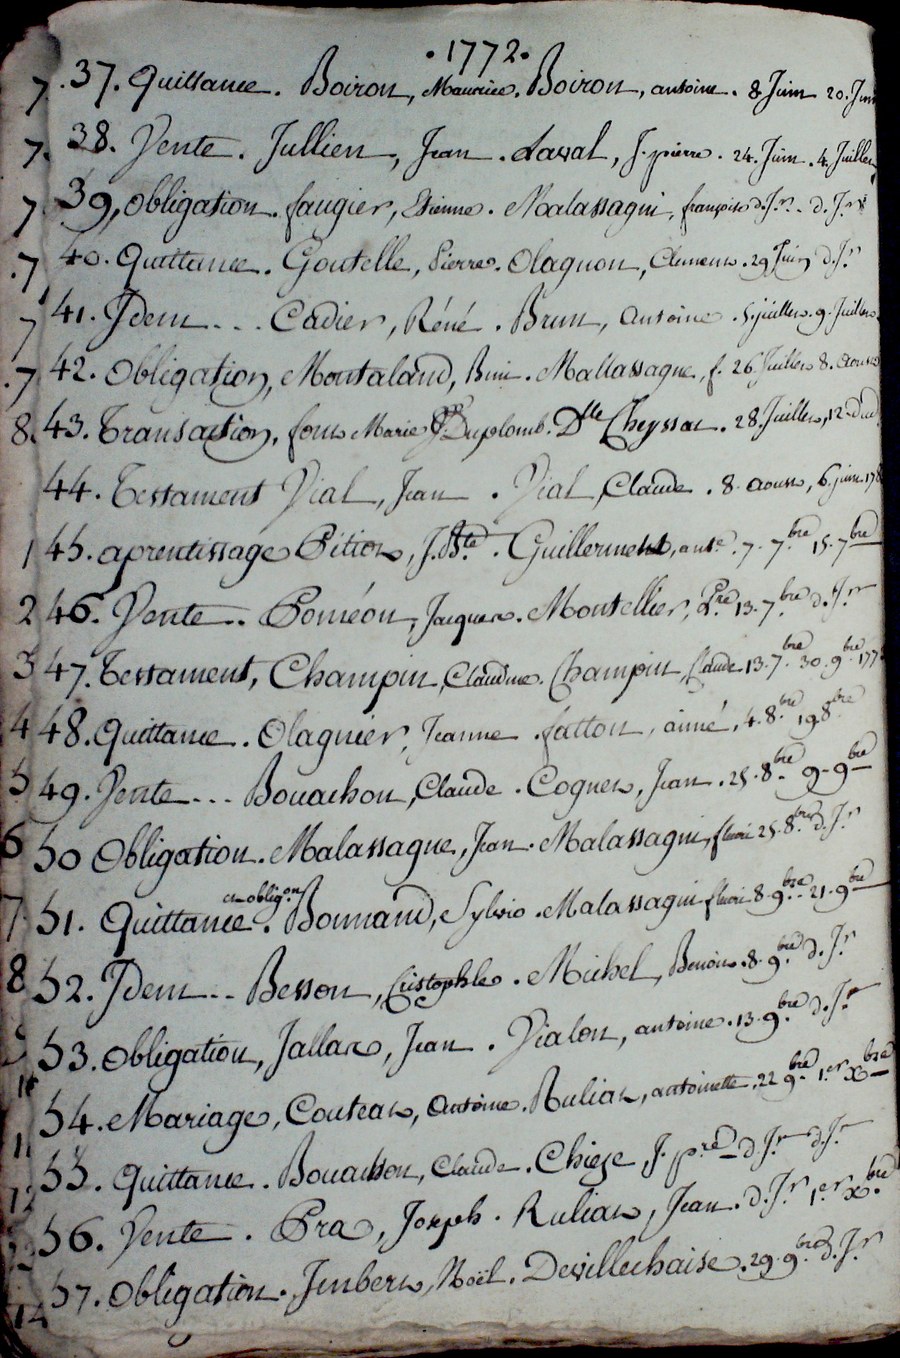 .1772.
7. 37. Quittance. Boiron, Maurice. Boiron, antoine. 8 Juin 20. Juin
7. 38. Vente. Jullien, Jean. Laval, J. pierre. 24. Juin. 4. Juillet
7 39, Obligation. faugier, Etienne. Malassagni, françois d. Jr. d. Jr
.7 40. Quittance. Goutelle, Pierre. Olagnon, Clement. 29 Juin d. Jr
7 41. Idem... Cadier, Réné. Brun, Antoine. 5 juillet. 9. Juillet
.7 42. Obligation, Montaland, Mallassagne, f. 26. Juillet 8. Aoust
8. 43. Transaction, Marie Duplomb. Dlle Cheyssac. 28. Juillet, 12.
44. Testament Vial, Jean. Vial, Claude. 8. aoust, 6. juin. 178
1 45. aprentissage Pition, J. Bte. Guillermet, ante. 7. 7bre 15. 7bre
2 46. Vente. Poméon, Jacques. Montellier, Pre 13. 7bre d. Jr
3 47. Testament, Champin, Claudine. Champin, Claude 13. 7bre 30. 9bre 177
4 48. Quittance. Olagnier, Jeanne. fatton, aimé, 4. 8bre 19 8bre
5 49. Vente... Bouachon, Claude. Cognet, Jean. 25. 8bre 9. 9bre
6 50 Obligation. Malassagne, Jean. Malassagni, fleuri 25. 8bre d. Jr
7 51. Quittance et oblig.on. Bonnand, Sylvio. Malassagni fleuri 8. 9bre 21. 9bre
8 52. Idem... Besson, Cristophle. Michel, Benoit. 8. 9bre d. Jr
53. Obligation, Jallat, Jean. Vialon, antoine. 13. 9bre d. Jr
54. Mariage, Couteau, Antoine. Rulias, antoinette. 22 9bre 1.er Xbre
11 55. Quittance. Bouachon, Claude. Chieze J. pre d. Jr d. Jr
12 56. Vente. Pra, Joseph. Rulias, Jean. d. Jr 1.er Xbre
14 57. Obligation. Imbert, Noël. Devillechaise. 29. 9bre d. Jr